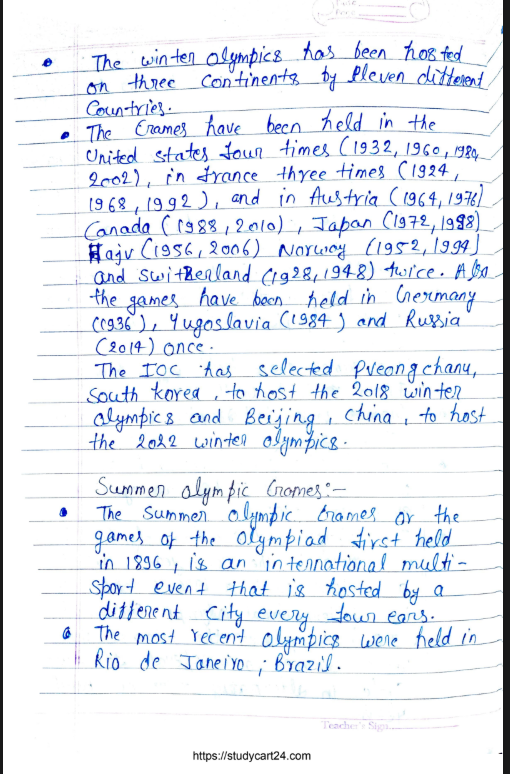 The winter olympics has been hosted
on three continents by eleven different
Countries.
The Games have been held in the
United states four times (1932, 1960, 1980,
2002), in france three times (1924,
1968, 1992), and in Austria (1964, 1976)
Canada (1988, 2010), Japan (1972, 1998)
(1956, 2006) Norway (1952, 1994)
and switzerland (1928, 1948) twice. Also
the games have been held in Germany
(1936), Yugoslavia (1984) and Russia
(2014) once.
The IOC has selected Pyeongchang,
South korea, to host the 2018 winter
olympics and Beijing, China, to host
the 2022 winter olympics.
Summer olympic Games:-
The Summer olympic Games or the
games of the Olympiad first held
in 1896, is an international multi-
sport event that is hosted by a
different City every four ears.
The most recent olympics were held in
Rio de Janeiro, Brazil.
Teacher's Sign
https://studycart24.com